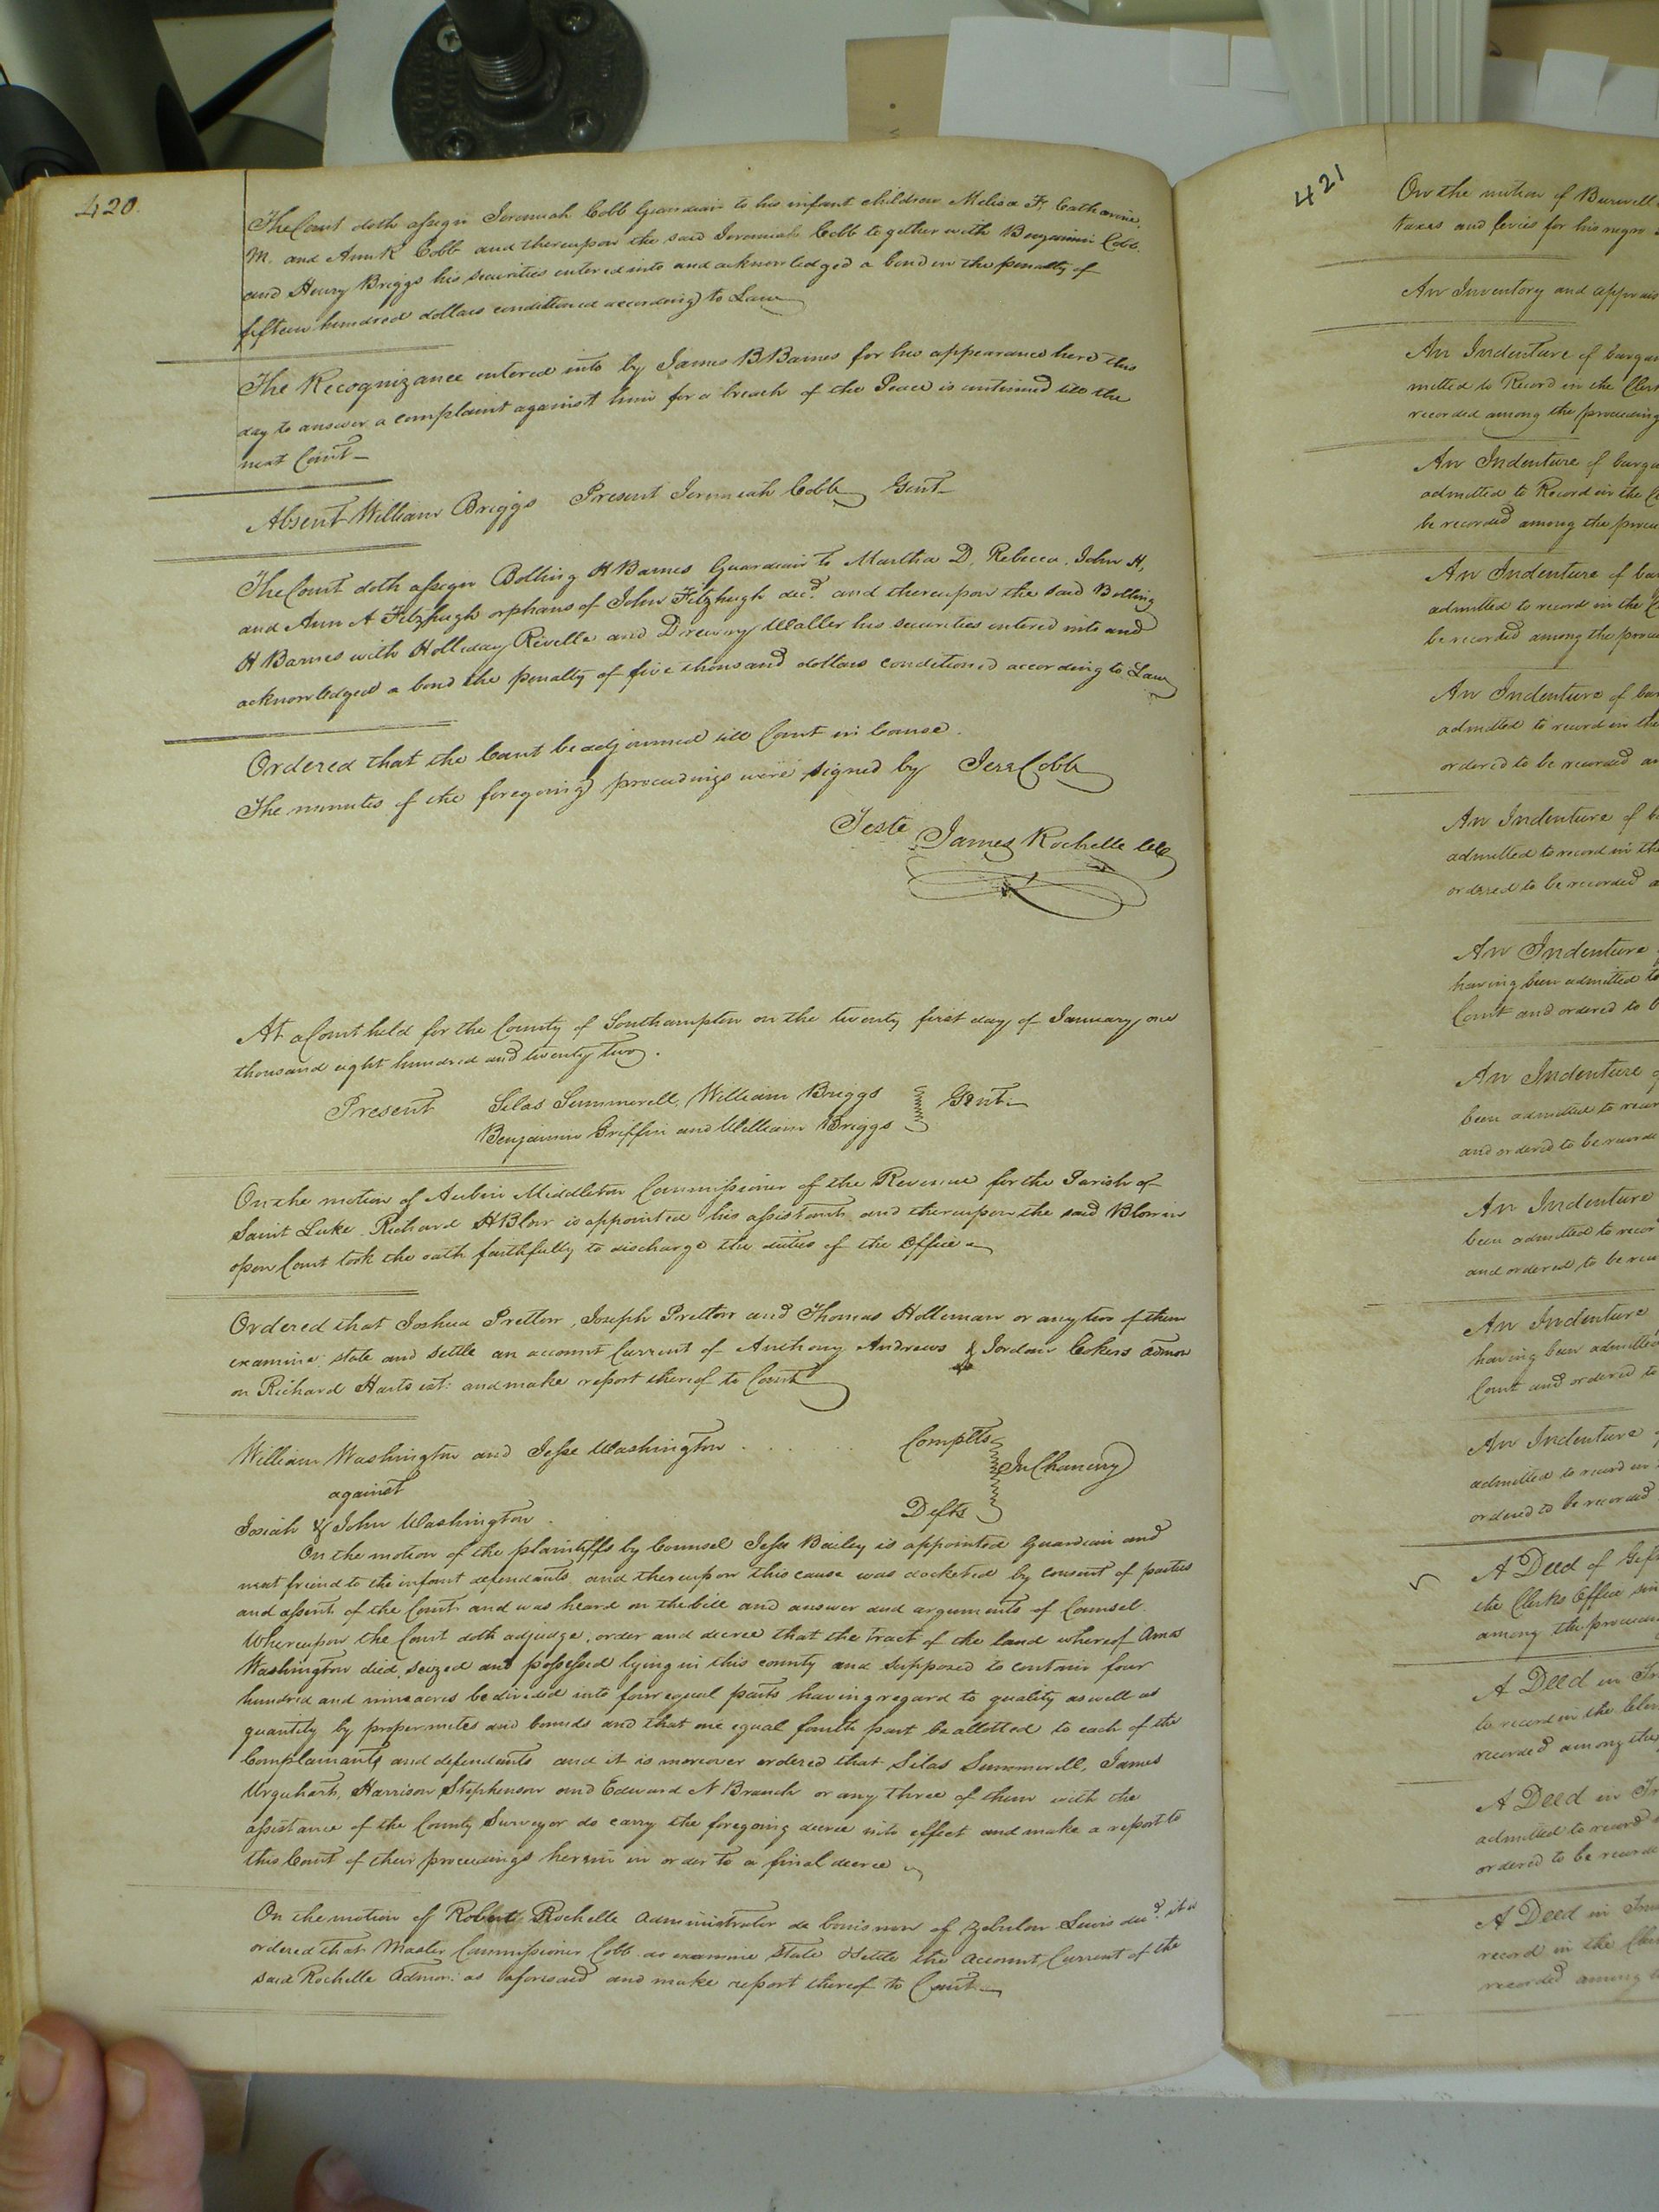 420.
The Court doth assign Jeremiah Cobb Guardian to his infant children Melisa F, Catharine
M. and Ann R Cobb and thereupon the said Jeremiah Cobb together with Benjamin Cobb
and Henry Briggs his securities entered into and acknowledged a bond in the penalty of
fifteen hundred dollars conditioned according to Law
The Recognizance entered into by James B Barnes for his appearance here this
day to answer a complaint against him for a breach of the Peace is continued till the
next Court
Absent William Briggs Present Jeremiah Cobb Gent
The Court doth assign Bolling H Barnes Guardian to Martha D, Rebecca, John H,
and Ann A Fitzhugh orphans of John Fitzhugh decd. and thereupon the said Bolling
H Barnes with Holliday Revelle and Drewry Waller his securities entered into and
acknowledged a bond the penalty of five thousand dollars conditioned according to Law
Ordered that the Court be adjourned till Court in Course.
The minutes of the foregoing proceedings were signed by Jere Cobb
Teste James Rochelle Clk
At a Court held for the County of Southampton on the twenty first day of January one
thousand eight hundred and twenty two.
Present Silas Summerell, William Briggs
Benjamin Griffin and William Briggs Gent
On the motion of Aubin Middleton Commissioner of the Revenue for the Parish of
Saint Luke Richard H Blow is appointed his assistant and thereupon the said Blow in
open Court took the oath faithfully to discharge the duties of the Office
Ordered that Joshua Pretlow, Joseph Pretlow and Thomas Holleman or any two of them
examine, state and settle an account Current of Anthony Andrews & Jordan Cokers admor
on Richard Harts est. and make report thereof to Court
William Washington and Jesse Washington . . . . . Complts
against In Chancery
Josiah & John Washington . Defts
On the motion of the plaintiffs by Counsel Jesse Bailey is appointed Guardian and
next friend to the infant defendants and thereupon this cause was docketed by consent of parties
and assent of the Court and was heard on the bill and answer and arguments of Counsel.
Whereupon the Court doth adjudge, order and decree that the tract of the land whereof Amos
Washington died, seized and possessed lying in this county and supposed to contain four
hundred and nine acres be divided into four equal parts having regard to quality as well as
quantity by proper metes and bounds and that one equal fourth part be allotted to each of the
Complainants and defendants and it is moreover ordered that Silas Summerell, James
Urquhart, Harrison Stephenson and Edward N Branch or any three of them with the
assistance of the County Surveyor do carry the foregoing decree into effect and make a report to
this Court of their proceedings herein in order to a final decree
On the motion of Robert Rochelle administrator de bonis non of Zebulon Lewis decd. it is
ordered that Master Commissioner Cobb do examine State & settle the account Current of the
said Rochelle Admor. as aforesaid and make report thereof to Court
421
On the motion of Burwell
taxes and levies for his negro
An Inventory and apprais
An Indenture of bargain
mitted to Record in the Clerk
recorded among the proceeding
An Indenture of barga
admitted to Record in the C
be recorded among the procee
An Indenture of bar
admitted to record in the C
be recorded among the procee
An Indenture of bar
admitted to record in the
ordered to be recorded a
An Indenture of b
admitted to record in the
ordered to be recorded a
An Indenture
having been admitted to
Court and ordered to b
An Indenture
been admitted to recor
and ordered to be recorde
An Indenture
been admitted to recor
and ordered to be reco
An Indenture
having been admitted
Court and ordered to
An Indenture
admitted to record in
ordered to be recorded
A Deed of Gift
the Clerks Office sin
among the proceedin
A Deed in Tr
to record in the Cler
recorded among the
A Deed in Tr
admitted to record
ordered to be recorde
A Deed in Trus
record in the Cler
recorded among